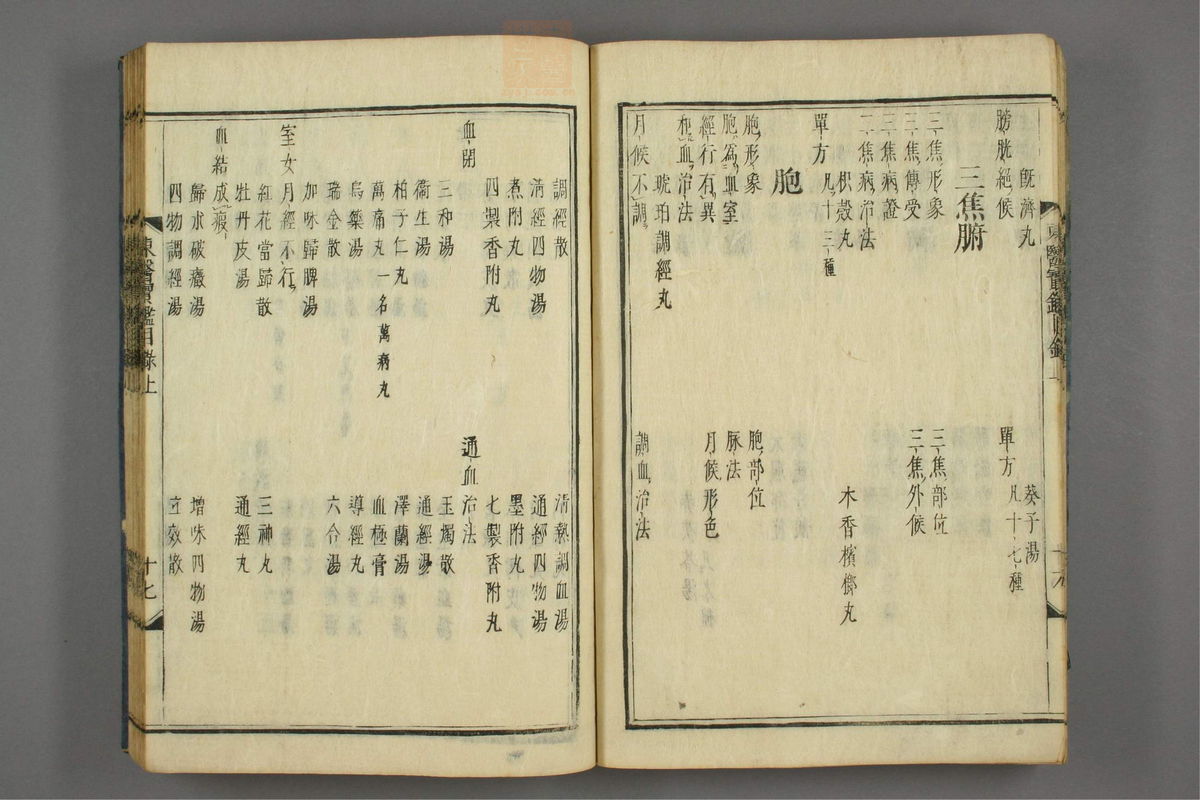 既濟丸
葵子湯
膀胱絕候
單方凡十七種
三焦腑
三焦形象
三焦部位
三焦傳受
三焦外候
三焦病證
三焦病治法
枳殼丸
木香檳榔丸
單方凡十三種
胞
胞形象
胞部位
胞爲血室
脉法
經行有異
月候形色
和血治法
琥珀調經丸
月候不調
調血治法
東醫寶鑑目錄上
十七
調經散
清熱調血湯
清經四物湯
通經四物湯
煮附丸
墨附丸
四製香附丸
七製香附丸
血閉
通血治法
三和湯
玉燭散
衞生湯
通經湯
柏子仁丸
澤蘭湯
萬痛丸一名萬病丸
血極膏
烏藥湯
導經丸
瑞金散
六合湯
加味歸脾湯
室女月經不行
紅花當歸散
三神丸
牡丹皮湯
通經丸
血結成瘕
歸朮破癥湯
增味四物湯
四物調經湯
立效散